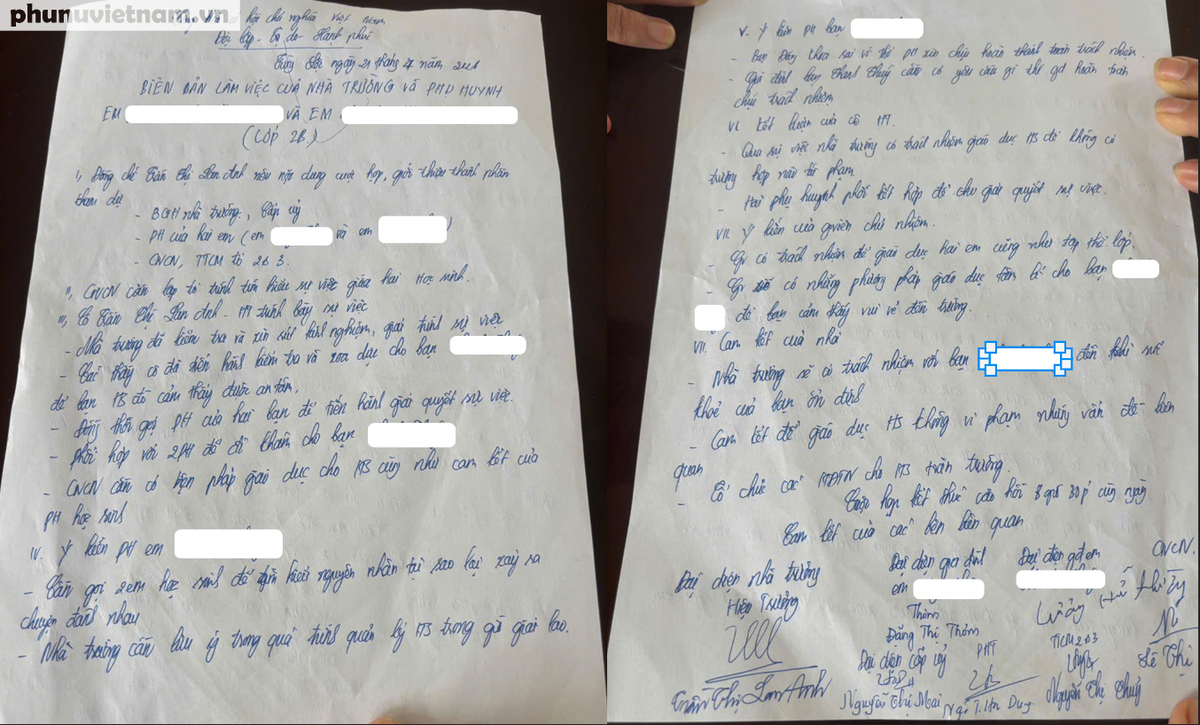 phunuvietnam.vn
hội chủ nghĩa Việt Nam
Độc lập - tự do - Hạnh phúc
ngày 21 tháng 4 năm
BIÊN BẢN LÀM VIỆC CỦA NHÀ TRƯỜNG VÀ PHỤ HUYNH
EM VÀ EM
(LỚP 2B)
I, Đồng chí Trần Thị Lan Anh nêu nội dung cuộc họp, giới thiệu thành phần
tham dự
- BGH nhà trường, Cấp ủy
- PH của hai em (em và em )
- GVCN, TTCM tổ 2+3.
II, GVCN cần lập tờ trình tìm hiểu sự việc giữa hai học sinh.
III, Cô Trần Thị Lan Anh - HT trình bày sự việc
- Nhà trường đã kiểm tra và xin rút kinh nghiệm, giải trình sự việc
- Các thầy cô đã tiến hành kiểm tra và xoa dịu cho bạn
để bạn HS đó cảm thấy được an tâm,
- Đồng thời gọi PH của hai bạn để tiến hành giải quyết sự việc.
- Phối hợp với 2PH để đi khám cho bạn
- GVCN cần có biện pháp giáo dục cho HS cũng như cam kết của
PH học sinh
IV. Ý kiến PH em
- Cần gọi 2 em học sinh để tìm hiểu nguyên nhân tại sao lại xảy ra
chuyện đánh nhau
- Nhà trường cần lưu ý trong quá trình quản lý HS trong giờ giải lao.
V. Ý kiến PH bạn
- Bạn Đăng thừa sai vì thế PH xin chịu hoàn thành toàn trách nhiệm
- Gia đình bạn Thanh Thuý cần có yêu cầu gì thì gđ hoàn toàn
chịu trách nhiệm
VI. Kết luận của cô HT.
- Qua sự việc nhà trường có trách nhiệm giáo dục HS để không có
trường hợp nào tái phạm
- Hai phụ huynh phối kết hợp để cho giải quyết sự việc.
VII. Ý kiến của giáo viên chủ nhiệm.
- GV có trách nhiệm để giáo dục hai em cũng như tập thể lớp.
- GV sẽ có những phương pháp giáo dục tâm lí cho bạn
để bạn cảm thấy vui vẻ đến trường.
VII. Cam kết của nhà
- Nhà trường sẽ có trách nhiệm với bạn đến khi sức
khoẻ của bạn ổn định
- Cam kết để giáo dục HS không vi phạm những vấn đề liên
quan
- Tổ chức các HĐTN cho HS toàn trường.
Cuộc họp kết thúc vào hồi 8 giờ 30p' cùng ngày
Cam kết của các bên liên quan
Đại diện nhà trường
Hiệu Trưởng
Trần Thị Lan Anh
Đại diện gia đình
em
Thỏm
Đặng Thị Thỏm
Đại diện cấp uỷ
Nguyễn Thị Mai
Đại diện gđ em
PHT
TTCM 2+3
Nguyễn Thị Thuỷ
GVCN.
Lê Thị